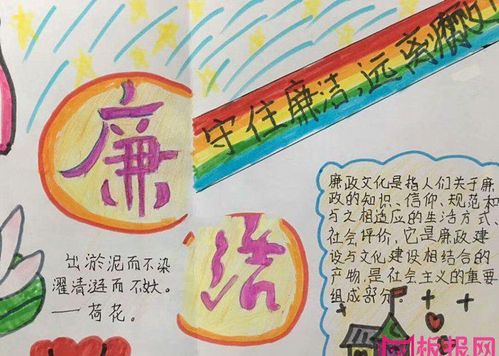 守住廉洁,远离
廉
洁
出淤泥而不染
濯清涟而不妖。
—荷花。
廉政文化是指人们关于廉
政的知识、信仰、规范和
与之相适应的生活方式、
社会评价,它是廉政建
设与文化建设相结合的
产物,是社会主义的重要
组成部分。
板报网